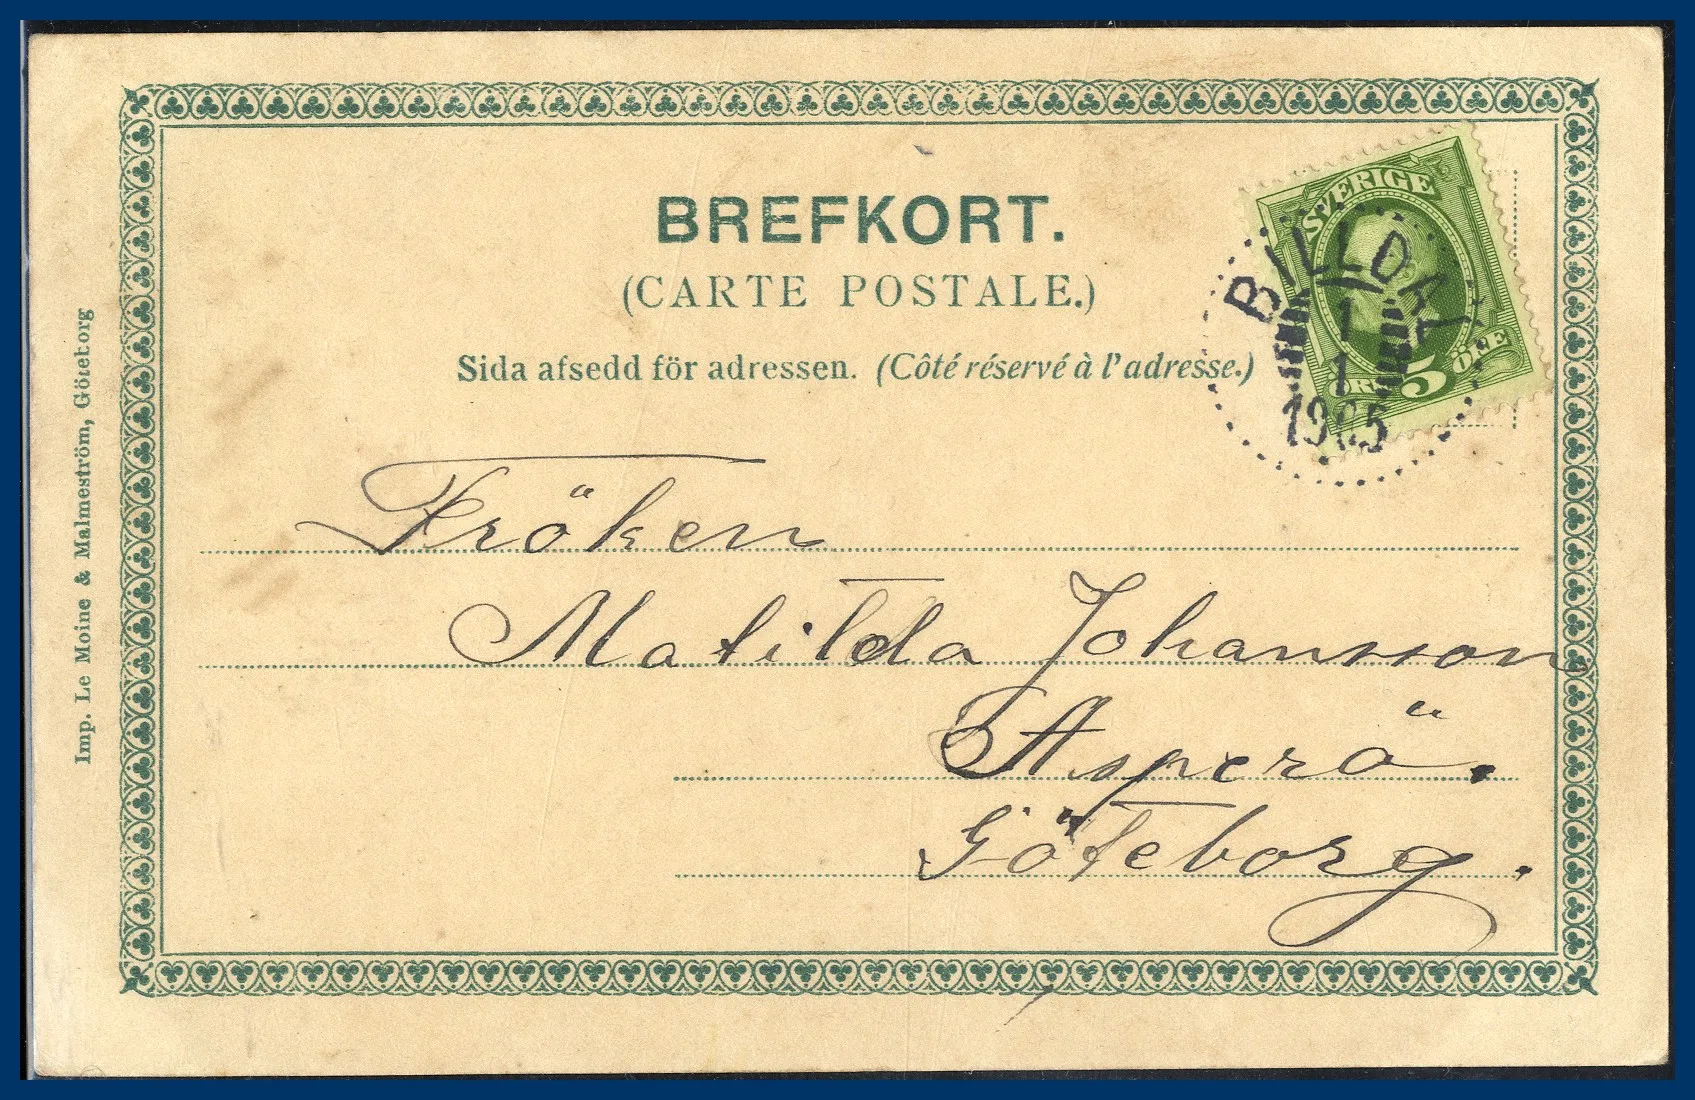 BREFKORT.
(CARTE POSTALE.)
Sida afsedd för adressen. (Côté réservé à l'adresse.)
SVERIGE
5 ÖRE
BILLDAL
1
1
1905
Fröken
Matilda Johansson
Asperö.
Göteborg.
Imp. Le Moine & Malmeström, Göteborg